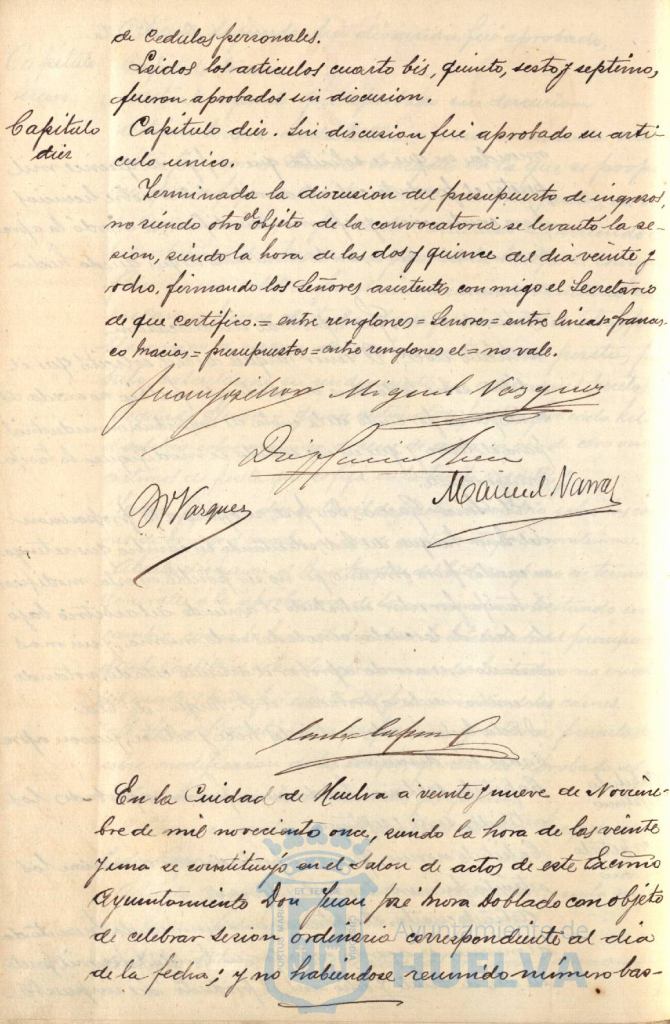 de cedulas personales.
Leidos los articulos cuarto bis, quinto, sesto y septimo,
fueron aprobados sin discusion.
Capitulo
diez
Capitulo diez. Sin discusion fué aprobado su arti-
culo unico.
Terminada la discusion del presupuesto de ingresos,
no siendo otro el objeto de la convocatoria se levantó la se-
sion, siendo la hora de las dos y quince del dia veinte y
ocho, firmando los Señores asistentes con migo el Secretario
de que certifico. = entre renglones = Señores = entre lineas = francis-
co Macias = presupuestos = entre renglones el = no vale.
Miguel Vazquez
Vazquez
Manuel Navar
En la Cuidad de Huelva a veinte y nueve de Noviem-
bre de mil novecientos once, siendo la hora de las veinte
y una se constituyó en el Salon de actos de este Excmo
Ayuntamiento Don Juan José Mora Doblado con objeto
de celebrar sesion ordinaria correspondiente al dia
de la fecha; y no habiendose reunido número bas-
Ayuntamiento de
HUELVA